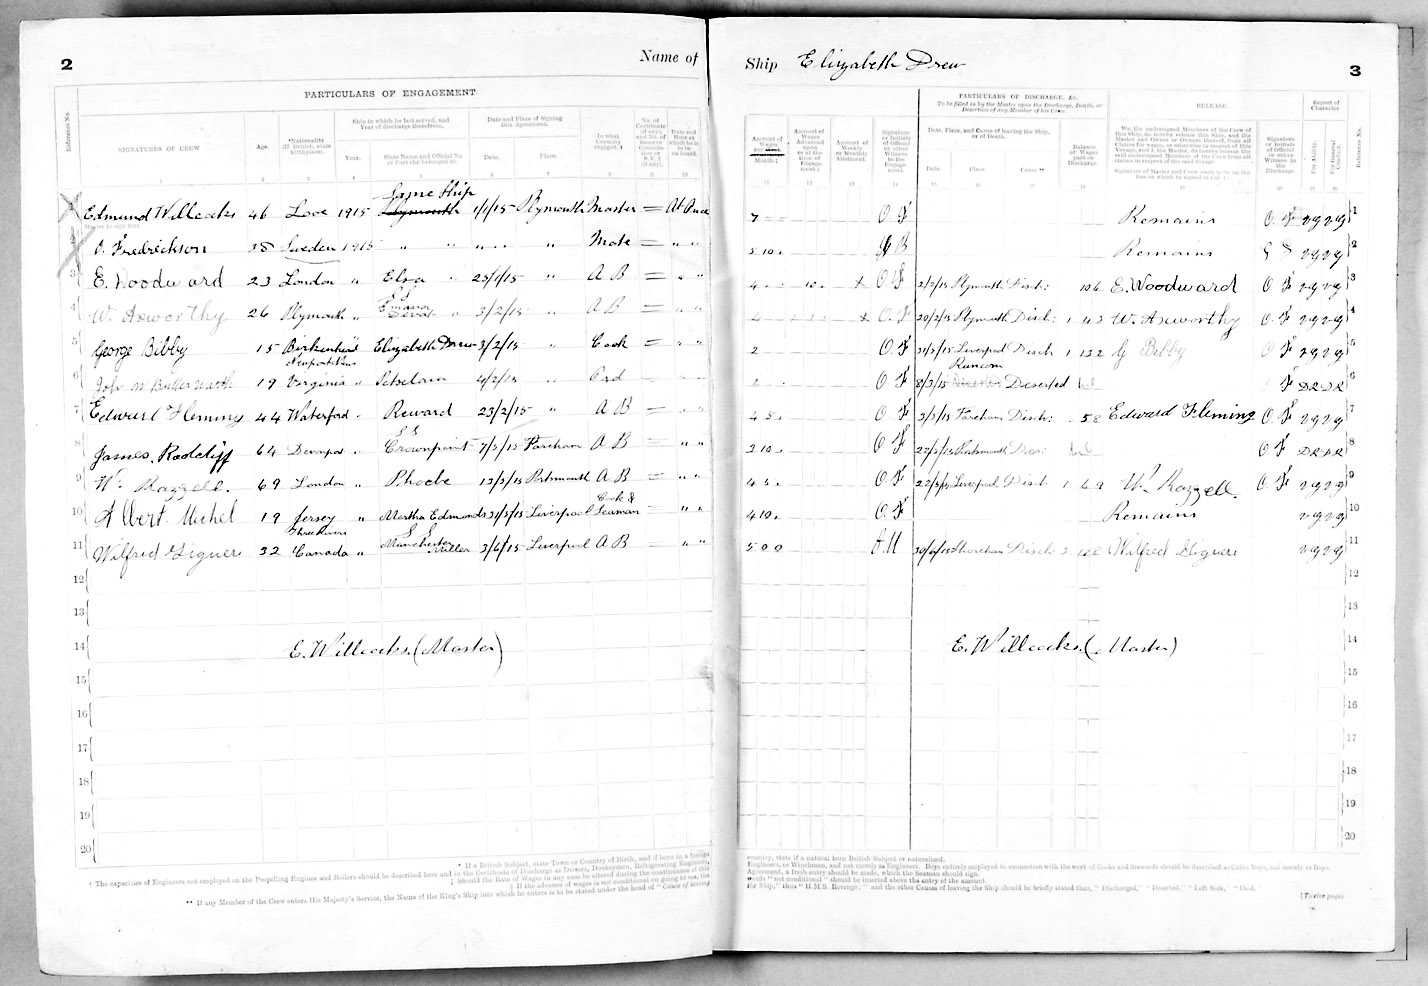 2
Name of
PARTICULARS OF ENGAGEMENT.
Reference No.
SIGNATURES OF CREW
Age.
*Nationality (If British, state birthplace).
Ship in which he last served, and Year of discharge therefrom.
Year.
State Name and Official No. or Port she belonged to.
Date and Place of Signing this Agreement.
Date.
Place.
In what Capacity engaged. †
Date and Hour at which he is to be on board.
1 2 3 4 5 6 7 8 9 10
Same Ship
Edmund Willcocks 46 Looe 1915 Plymouth 1/1/15 Plymouth Master = At Once
O. Fredrickson 38 Sweden 1915 " " " " " Mate = " "
3 E. Woodward 23 London " Elsa " 25/1/15 " A B = " "
S S
4 W Axworthy 26 Plymouth " " 3/2/15 " A B = " "
5 George Bibby 15 Birkenhead Elizabeth Drew 3/2/15 " Cook = " "
6 John W Butterworth 19 Virginia " 4/2/15 " Ord = " "
7 Edward Fleming 44 Waterford " Reward 23/2/15 " A B = " "
S S
8 James. Radcliff 64 Devonport " Crownpoint 7/3/15 Fareham A B = " "
9 W. Razzell. 69 London " Phoebe 13/3/15 Portsmouth A B = " "
Cook &
10 Albert Michel 19 Jersey " Martha Edmonds 31/3/15 Liverpool Seaman = " "
Three Rivers S S
11 Wilfred Giguere 32 Canada " Manchester Miller 3/6/15 Liverpool A B = " "
12
13
14 E. Willcocks. (Master)
15
16
17
18
19
20
* If a British Subject, state Town or Country of Birth, and if born in a foreign
† The capacities of Engineers not employed on the Propelling Engines and Boilers should be described here and in the Certificate of Discharge as Drivers, Donkeymen, Refrigerating Engineers,
‡ Should the Rate of Wages in any case be altered during the continuance of this
§ If the advance of wages is not conditional on going to sea, the
** If any Member of the Crew enters His Majesty's Service, the Name of the King's Ship into which he enters is to be stated under the head of "Cause of leaving
Ship Elizabeth Drew
3
PARTICULARS OF DISCHARGE, &c.
To be filled in by the Master upon the Discharge, Death, or Desertion of any Member of his Crew.
RELEASE.
Report of Character
Amount of Wages per Month.‡
Amount of Wages Advanced upon or at the time of Engagement.§
Amount of Weekly or Monthly Allotment.
Signature or Initials of Official or other Witness to the Engagement.
Date, Place, and Cause of leaving the Ship, or of Death.
Date. Place Cause**
Balance of Wages paid on Discharge.
We, the undersigned Members of the Crew of this Ship, do hereby release this Ship, and the Master and Owner or Owners thereof, from all Claims for wages, or otherwise in respect of this Voyage, and I, the Master, do hereby release the said undersigned Members of the Crew from all claims in respect of the said voyage
Signature or Initials of Official or other Witness to the Discharge.
For Ability.
For General Conduct.
Reference No.
11 12 13 14 15 16 17 18 19 20 21 22
7 O. F Remains O. F vg vg 1
5 10 Remains vg vg 2
4 10 x O. F 2/2/15 Plymouth Disch: 10 6 E. Woodward O F vg vg 3
x O. F 20/2/15 Plymouth Disch: 1 W. Axworthy O. F vg vg 4
2 O. F 31/3/15 Liverpool Disch 1 13 2 G Bibby O F vg vg 5
Runcorn
O F 8/3/15 Deserted F DR DR 6
4 5 O. F 3/3/15 Fareham Disch: 5 8 Edward Fleming O. F vg vg 7
3 10 O F 22/3/15 Portsmouth Des: O F DR DR 8
4 5 O. F Liverpool Disch 1 6 9 W. Razzell. O. F vg vg 9
4 10 O. F Remains vg vg 10
5 0 0 A.M 30/6/15 Shoreham Disch Wilfred Giguere vg vg 11
12
13
E. Willcocks. (Master) 14
15
16
17
18
19
20
country, state if a natural born British Subject or naturalized.
Engineers, or Winchmen, and not merely as Engineers. Boys entirely employed in connection with the work of Cooks and Stewards should be described as Cabin Boys, not merely as Boys.
Agreement, a fresh entry should be made, which the Seaman should sign.
words "not conditional" should be inserted above the entry of the amount.
the Ship," thus "H.M.S. Revenge;" and the other Causes of leaving the Ship should be briefly stated thus, "Discharged," "Deserted," "Left Sick," "Died.
[Twelve pages